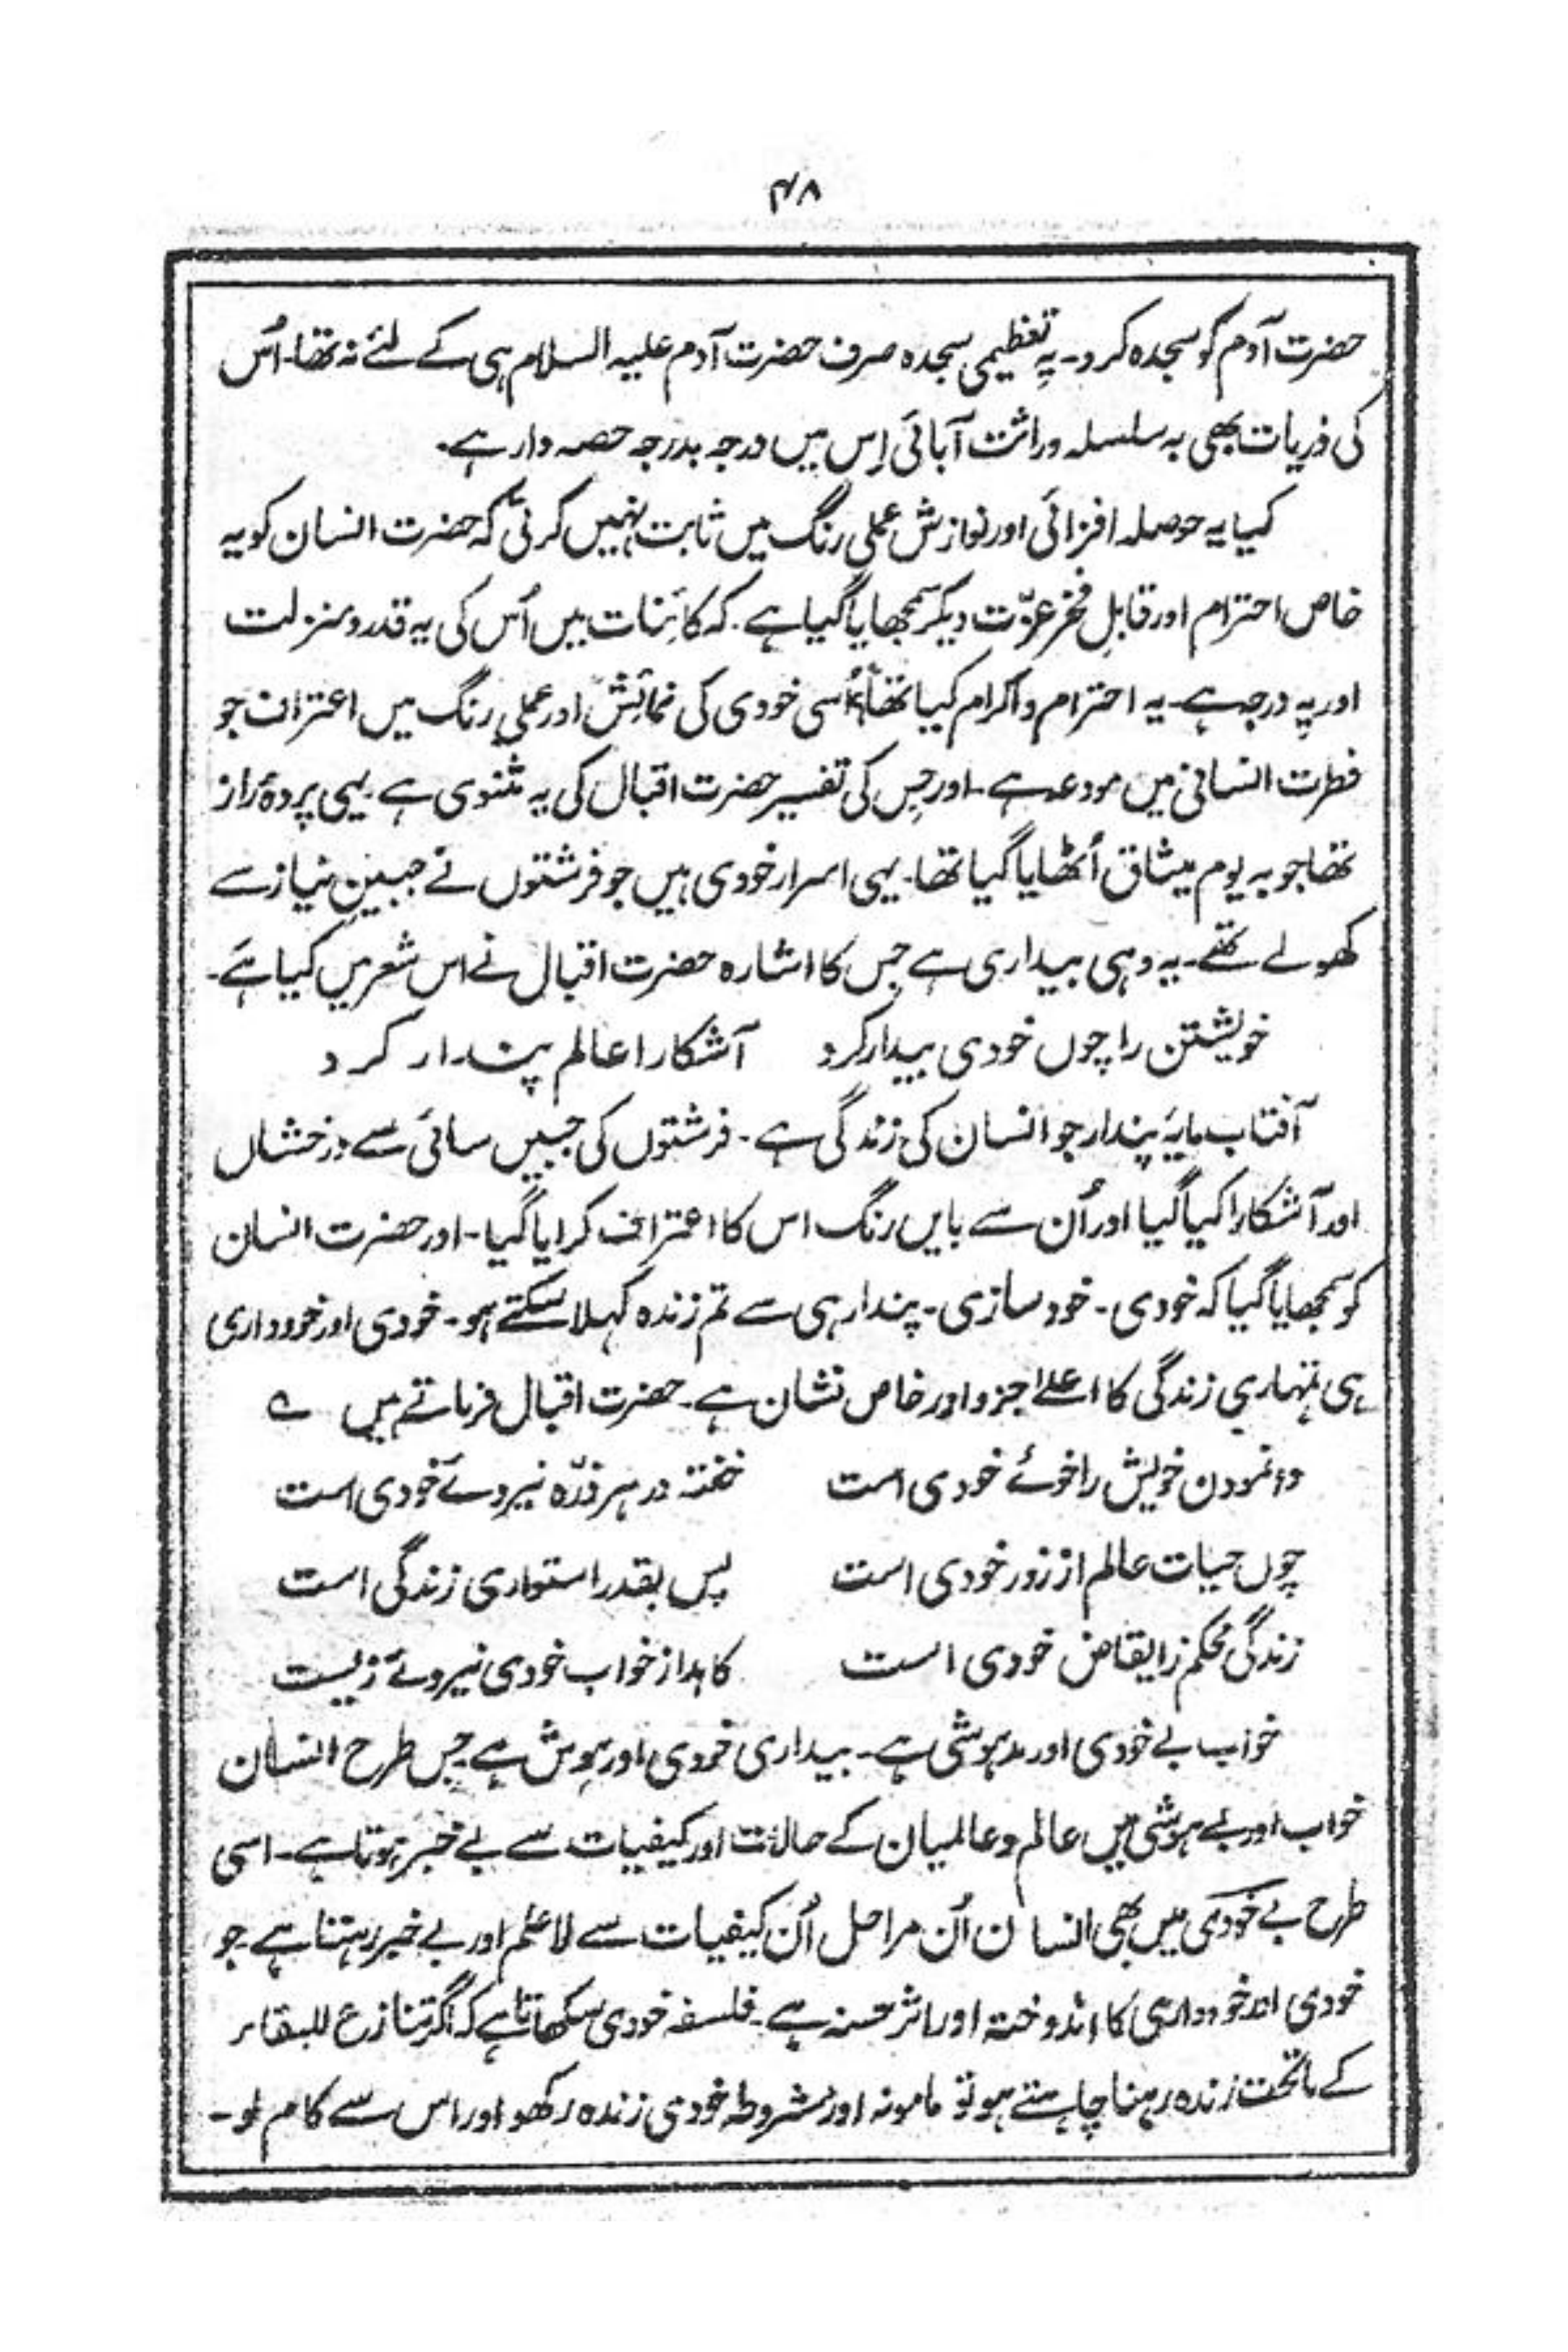 ۴۸
حضرت آدم کو سجدہ کرو۔ یہ تعظیمی سجدہ صرف حضرت آدم علیہ السلام ہی کے لئے نہ تھا۔ اُس
کی ذریات بھی بہ سلسلہ وراثت آبائی اِس میں درجہ بدرجہ حصہ دار ہے۔
کیا یہ حوصلہ افزائی اور نوازش عملی رنگ میں ثابت نہیں کرتی کہ حضرت انسان کو یہ
خاص احترام اور قابلِ فخر عزّت دیکر سمجھایا گیا ہے۔ کہ کائنات میں اُس کی یہ قدر و منزلت
اور یہ درجہ ہے۔ یہ احترام و اکرام کیا تھا؟ اُسی خودی کی نمائش اور عملی رنگ میں اعتراف جو
فطرت انسانی میں مودعہ ہے۔ اور جس کی تفسیر حضرت اقبال کی یہ مثنوی ہے۔ یہی پردۂ راز
تھا جو بہ یوم میثاق اُٹھایا گیا تھا۔ یہی اسرار خودی ہیں جو فرشتوں نے جبینِ نیاز سے
کھولے تھے۔ یہ وہی بیداری ہے جس کا اشارہ حضرت اقبال نے اس شعر میں کیا ہے۔
خویشتن را چوں خودی بیدار کرد آشکارا عالم پندار کرد
آفتاب مایۂ پندار جو انسان کی زندگی ہے۔ فرشتوں کی جبیں سائی سے درخشاں
اور آشکارا کیا گیا اور اُن سے بایں رنگ اس کا اعتراف کرایا گیا۔ اور حضرت انسان
کو سمجھایا گیا کہ خودی۔ خود سازی۔ پندار ہی سے تم زندہ کہلا سکتے ہو۔ خودی اور خودداری
ہی تمہاری زندگی کا اعلےٰ جزو اور خاص نشان ہے۔ حضرت اقبال فرماتے ہیں ؎
وانمودن خویش را خوئے خودی است خفتہ در ہر ذرّہ نیروئے خودی است
چوں حیات عالم از زور خودی است پس بقدر استواری زندگی است
زندگی محکم ز ایقاض خودی است کاہد از خواب خودی نیروئے زیست
خواب بے خودی اور مدہوشی ہے۔ بیداری خودی اور ہوش ہے جس طرح انسان
خواب اور بے ہوشی میں عالم و عالمیان کے حالات اور کیفیات سے بے خبر ہوتا ہے۔ اسی
طرح بے خودی میں بھی انسان اُن مراحل اُن کیفیات سے لاعلم اور بے خبر رہتا ہے۔ جو
خودی اور خودداری کا اندوختہ اور اثر حسنہ ہے۔ فلسفہ خودی سکھاتا ہے کہ اگر تنازع للبقاء
کے ماتحت زندہ رہنا چاہتے ہو تو مامونہ اور مشروطہ خودی زندہ رکھو اور اس سے کام لو۔